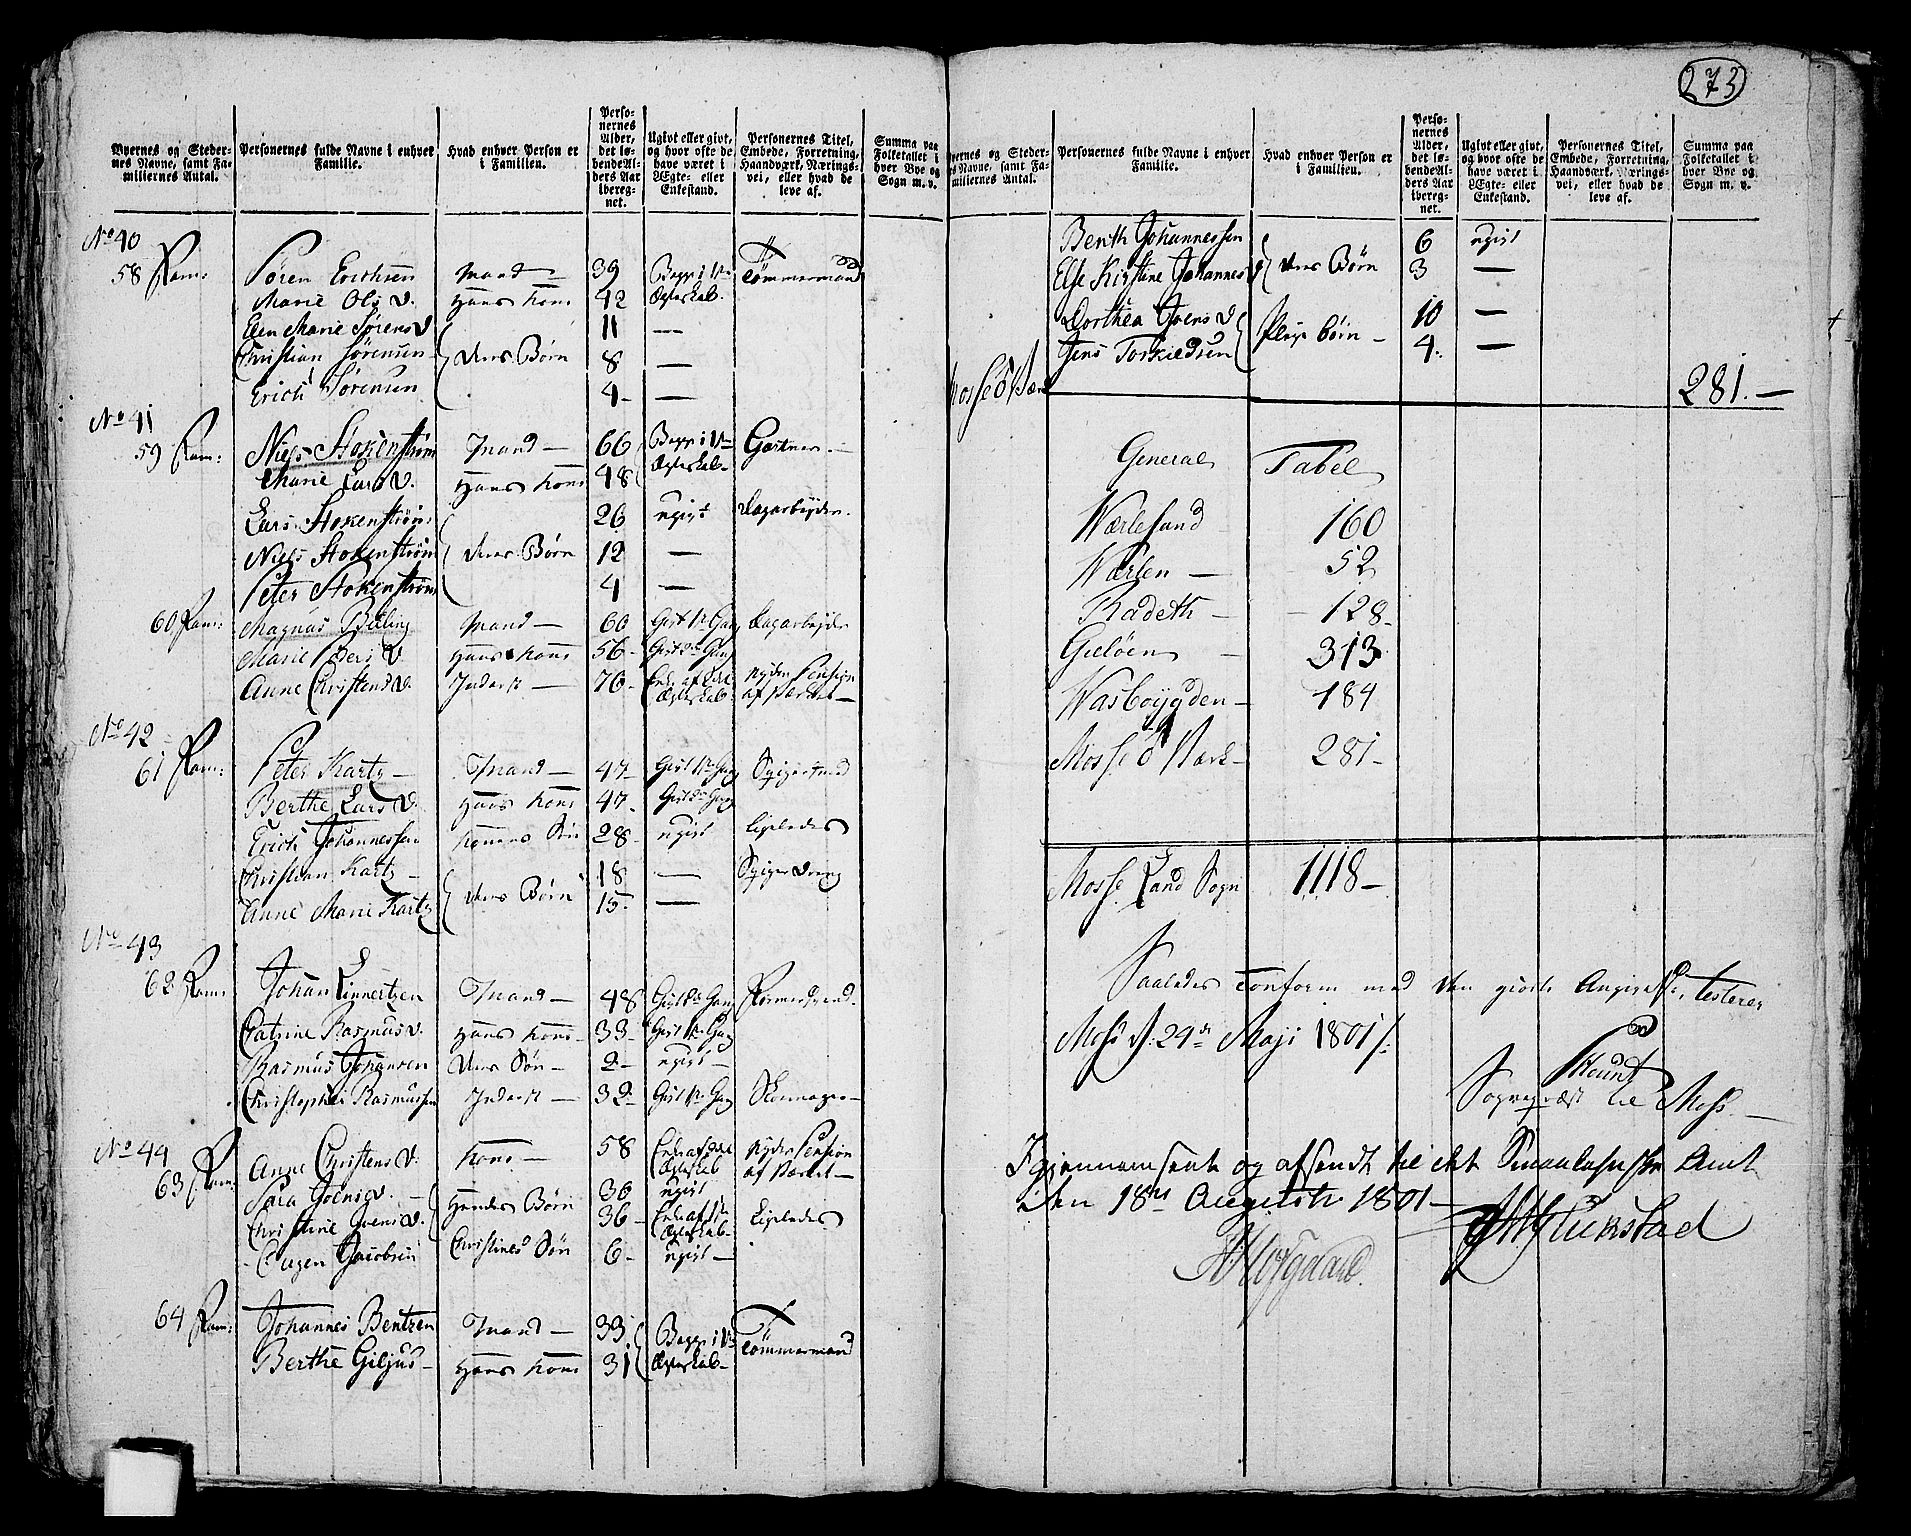 273
Byernes og Steder-
nes Navne, samt Fa-
miliernes Antal.
Personernes fulde Navne i enhver
Familie.
Hvad enhver Person er
i Familien.
Perso-
nernes
Alder,
det lø-
bende Al-
ders Aar
ibereg-
net.
Ugivt eller givt,
og hvor ofte de
have været i
Ægte- eller
Enkestand.
Personernes Titel,
Embede, Forretning,
Haandværk, Nærings-
vei, eller hvad de
leve af.
Summa paa
Folketallet i
hver Bye og
Sogn m. v.
No 40
58 Fam: Søren Erichsen Mand — 39 Begge i 1te Tømmermand
Marie Ols D. Hans Kone 42 Ægteskab.
Elen Marie Sørens D 11 —
Christian Sørensen Deres Børn 8 —
Erich Sørensen 4 — —
No 41
59 Fam: Niels Stokenstrøm Mand — 66 Begge i 1te Gartner —
Marie Lars D. Hans Kone 48 Ægteskab
Lars Stokenstrøm 26 ugift Dagarbeyder
Niels Stokenstrøm Deres Børn 12 —
Peter Stokenstrøm 4 —
60 Fam: Magnus Belling Mand — 60 Gift 1te Gang Dagarbeyder
Marie Peers D Hans Kone 56 Gift Gang
Anne Christens D. Inderst — 76 Enke af Ægteskab nyder Pension af Værket
No 42
61 Fam: Peter Kartz — Mand — 47 Gift 1te Gang Spigersmed
Berthe Lars D. Hans Kone 47 Gift 2den Gang
Erich Johannessen Konens Søn 28 ugift ligeledes
Christian Kartz — 18 — Spigerdreng
Anne Marie Kartz Deres Børn 15 —
No 43
62 Fam: Johan Linnertzen Mand — 48 Gift 2den Gang Formersvend
Catrine Rasmus D. Hans Kone 33 Gift 1te Gang
Rasmus Johansen Deres Søn — 2 ugift —
Christopher Rasmussen Inderst — 32 Gift 1te Gang Skomager —
No 44
63 Fam: Anne Christens D. Kone — 58 Enke af Ægteskab nyder Pension af Værket —
Sara Joens D. — Hendes Børn 30 ugift
Christine Joens D. 36 Enke af 1te Ægteskab Ligeledes
Eugen Jacobsen Christines Søn 6 ugift —
64 Fam: Johannes Bentzen Mand — 33 Begge i 1te Tømmermand
Berthe Giljus — Hans Kone 31 Ægteskab
Byernes og Steder-
nes Navne, samt Fa-
miliernes Antal.
Personernes fulde Navne i enhver
Familie.
Hvad enhver Person er
i Familien.
Perso-
nernes
Alder,
det lø-
bende Al-
ders Aar
ibereg-
net.
Ugivt eller givt,
og hvor ofte de
have været i
Ægte- eller
Enkestand.
Personernes Titel,
Embede, Forretning,
Haandværk, Nærings-
vei, eller hvad de
leve af.
Summa paa
Folketallet i
hver Bye og
Sogn m. v.
Benth Johannessen 6 ugift
Else Kirstine Johannes D Deres Børn 3 —
Dorthea Joens D 10 —
Jens Torkildsen Pleje børn — 4 —
Mosse Værk 281. —
General Tabel
Wærlesund 160
Wærlen — 52
Radeth — 128
Gieløen — 313
Wasboygden — 184
Mosse Værk — 281 —
Mosse Land Sogn 1118 —
Saaledes conform med den giorte Angivelse, testerer
Moss d. 24de Maji 1801/.
Sogneprest til Moss. —
Igiennemseet og afsendt til det Smaalehnske Amt
den 18de Augusti 1801 —